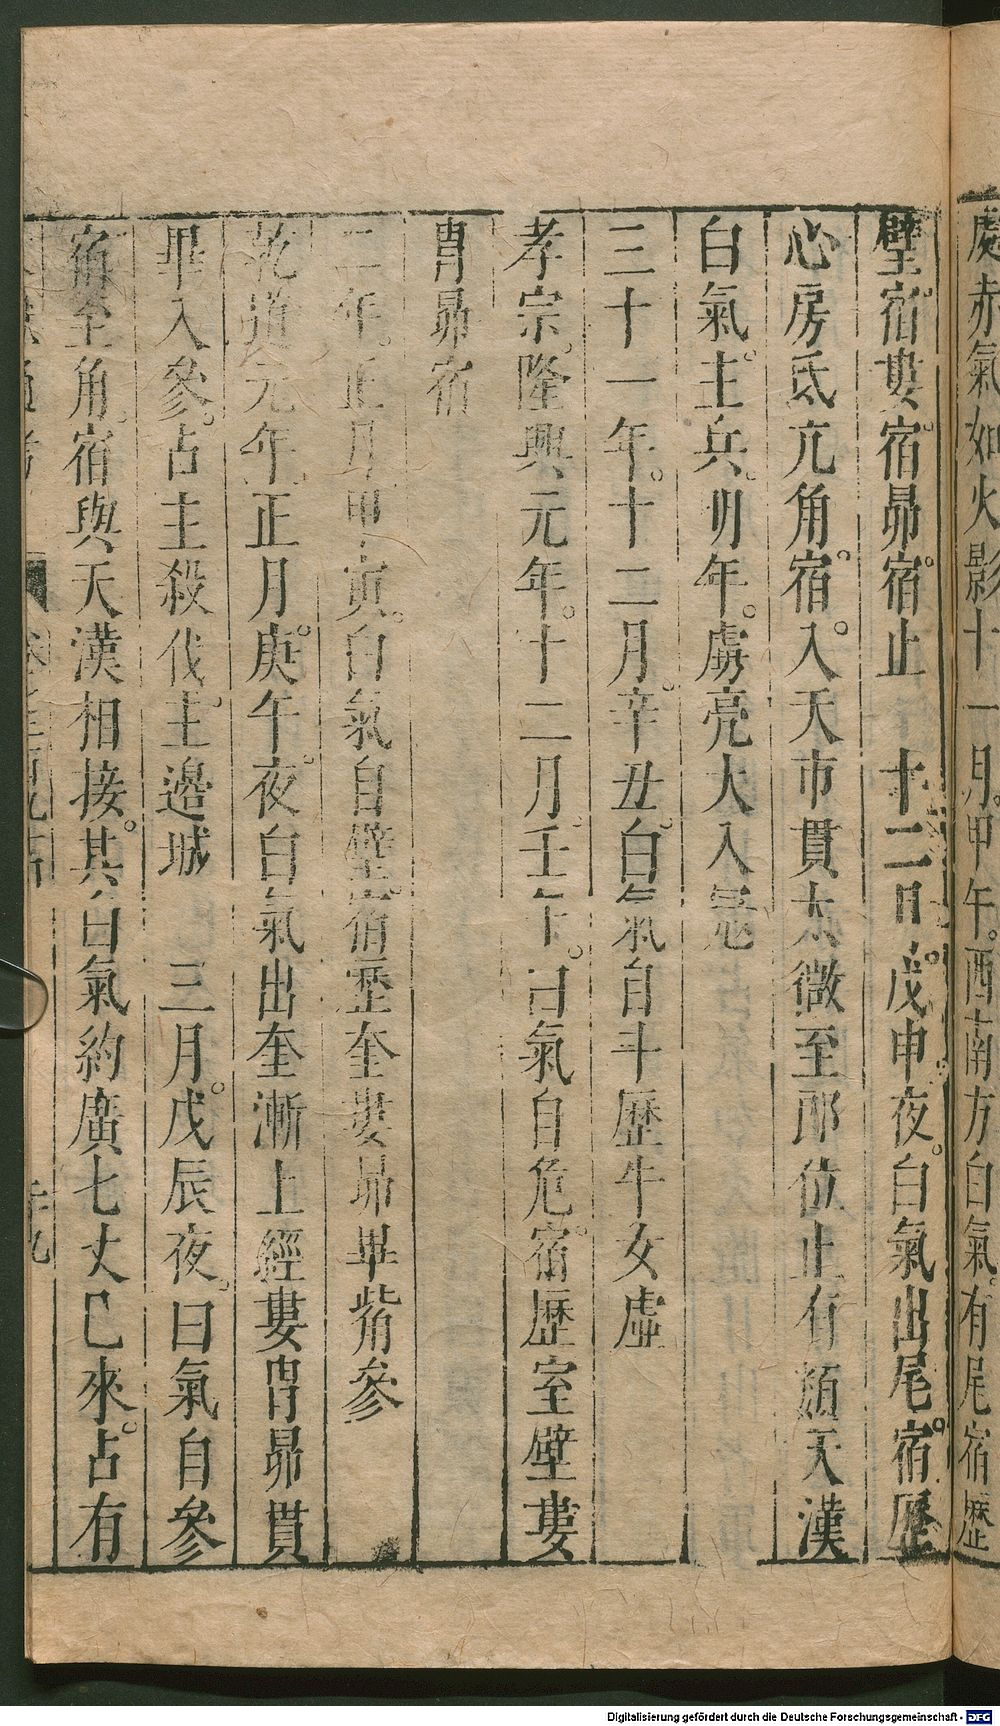 處赤氣如火影十一月甲午西南方白氣有尾宿歷
壁宿婁宿昴宿止　十二日戊申夜白氣出尾宿歷
心房氐亢角宿入天市貫太微至郎位止有類天漢
白氣主兵明年虜亮大入冦
三十一年十二月辛丑白氣自斗歷牛女虛
孝宗隆興元年十二月壬午白氣自危宿歷室壁婁
胃昴宿
二年正月甲寅白氣自壁宿歷奎婁昴畢觜參
乾道元年正月庚午夜白氣出奎漸上經婁胃昴貫
畢入參占主殺伐主邊城　三月戊辰夜曰氣自參
宿至角宿與天漢相接其白氣約廣七丈已來占有
通考
Digitalisierung gefördert durch die Deutsche Forschungsgemeinschaft - DFG